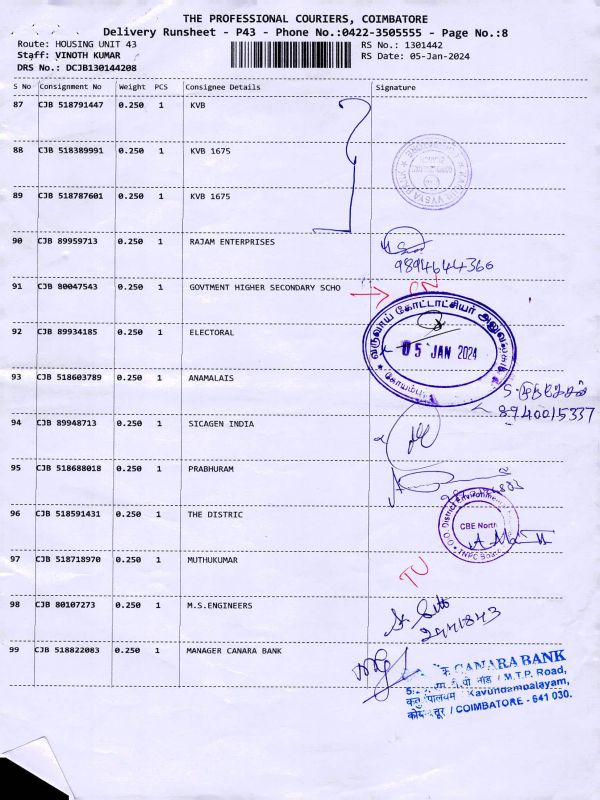 THE PROFESSIONAL COURIERS, COIMBATORE
Delivery Runsheet - P43 - Phone No.:0422-3505555 - Page No.:8
Route: HOUSING UNIT 43 RS No.: 1301442
Staff: VINOTH KUMAR RS Date: 05-Jan-2024
DRS No.: DCJB130144208
S No Consignment No Weight PCS Consignee Details Signature
87 CJB 518791447 0.250 1 KVB
88 CJB 518389991 0.250 1 KVB 1675
89 CJB 518787601 0.250 1 KVB 1675
90 CJB 89959713 0.250 1 RAJAM ENTERPRISES
9894644366
91 CJB 80047543 0.250 1 GOVTMENT HIGHER SECONDARY SCHO
வருவாய் கோட்டாட்சியர் அலுவலகம்
92 CJB 89934185 0.250 1 ELECTORAL
05 JAN 2024
93 CJB 518603789 0.250 1 ANAMALAIS
8940015337
94 CJB 89948713 0.250 1 SICAGEN INDIA
95 CJB 518688018 0.250 1 PRABHURAM
96 CJB 518591431 0.250 1 THE DISTRIC
CBE North
97 CJB 518718970 0.250 1 MUTHUKUMAR
98 CJB 80107273 0.250 1 M.S.ENGINEERS
2441843
99 CJB 518822083 0.250 1 MANAGER CANARA BANK
CANARA BANK
M.T.P. Road,
Kavundampalayam,
/ COIMBATORE - 641 030.